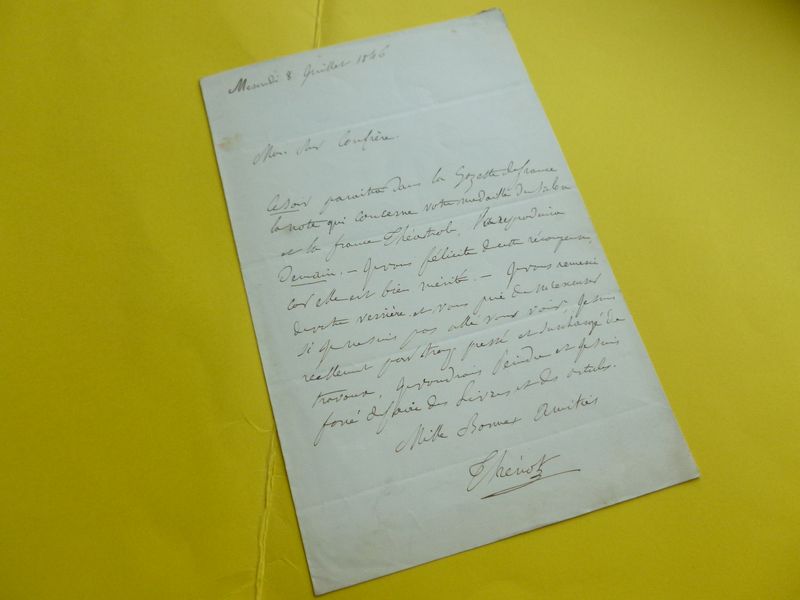 Mercredi 8 Juillet 1846
Mon cher Confrère.
Ce soir paraîtra dans la Gazette de france
la note qui concerne votre medaille du Salon
et la france Théatrale, la reproduira
Demain. — Je vous félicite de cette récompense,
car elle est bien mérité. — Je vous remercie
de votre verrière et vous prie de m'excuser
si je ne suis pas allé vous voir je suis
réellement par trop pressé et surchargé de
travaux, je voudrais Peindre et je suis
forcé de faire des Livres et des articles.
Mille Bonnes Amitiés
Thénot